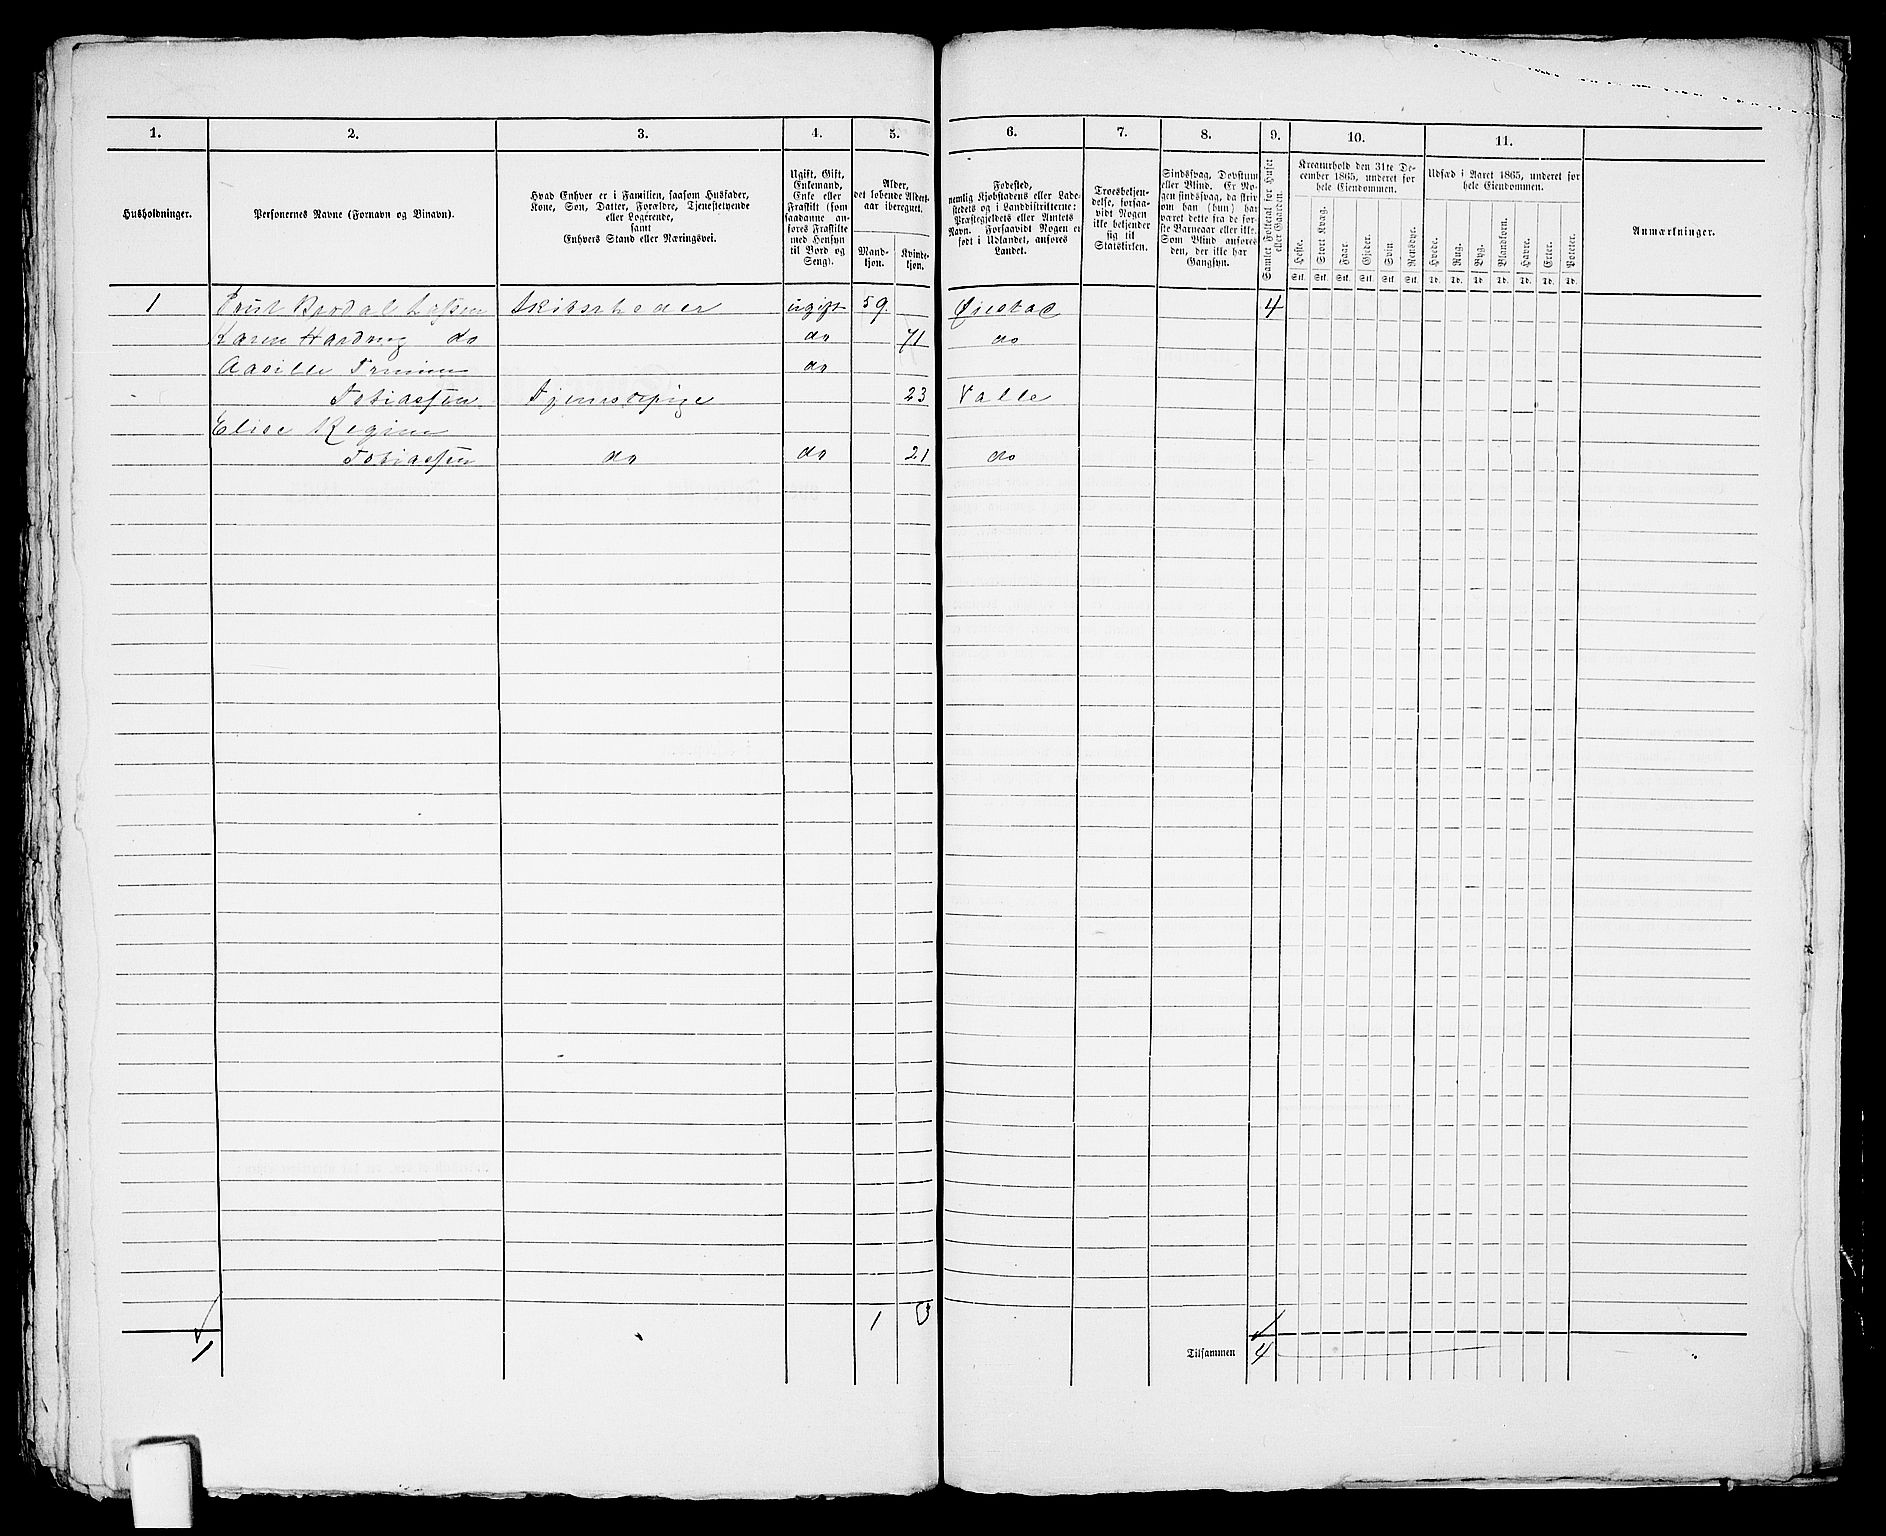 1. 2. 3. 4. 5. 6. 7. 8. 9. 10. 11.
Husholdninger.
Personernes Navne (Fornavn og Binavn).
Hvad Enhver er i Familien, saasom Husfader,
Kone, Søn, Datter, Forældre, Tjenestetyende
eller Logerende,
samt
Enhvers Stand eller Næringsvei.
Ugift, Gift,
Enkemand,
Enke eller
Fraskilt (som
saadanne an-
føres Fraskilte
med Hensyn
til Bord og
Seng).
Alder,
det løbende Alders-
aar iberegnet.
Mand-
kjøn.
Kvinde-
kjøn.
Fødested,
nemlig Kjøbstadens eller Lade-
stedets og i Landdistrikterne:
Præstegjeldets eller Amtets
Navn. Forsaavidt Nogen er
født i Udlandet, anføres
Landet.
Troesbekjen-
delse, forsaa-
vidt Nogen
ikke bekjender
sig til
Statskirken.
Sindssvag, Døvstum
eller Blind. Er No-
gen sindssvag, da skriv
om han (hun) har
været dette fra de før-
ste Barneaar eller ikke.
Som Blind anføres
den, der ikke har
Gangsyn.
Samlet Folketal for Huset
eller Gaarden.
Kreaturhold den 31te De-
cember 1865, underet for
hele Eiendommen.
Heste. Stort Kvæg. Faar. Gjeder. Svin Rensdyr.
Stk. Stk. Stk. Stk. Stk. Stk.
Udsæd i Aaret 1865, underet for
hele Eiendommen.
Hvede. Rug. Byg. Blandkorn. Havre. Erter. Poteter.
Td. Td. Td. Td. Td. Td. Td.
Anmærkninger.
1 Lassen Skibsrheder ugift 59. Øiestad 4
Karen do do 71 do
Aasille do
Tobiassen Tjenestepige 23 Valle
Elise Regine
Tobiassen do do 21 do
1 3
1 Tilsammen 4